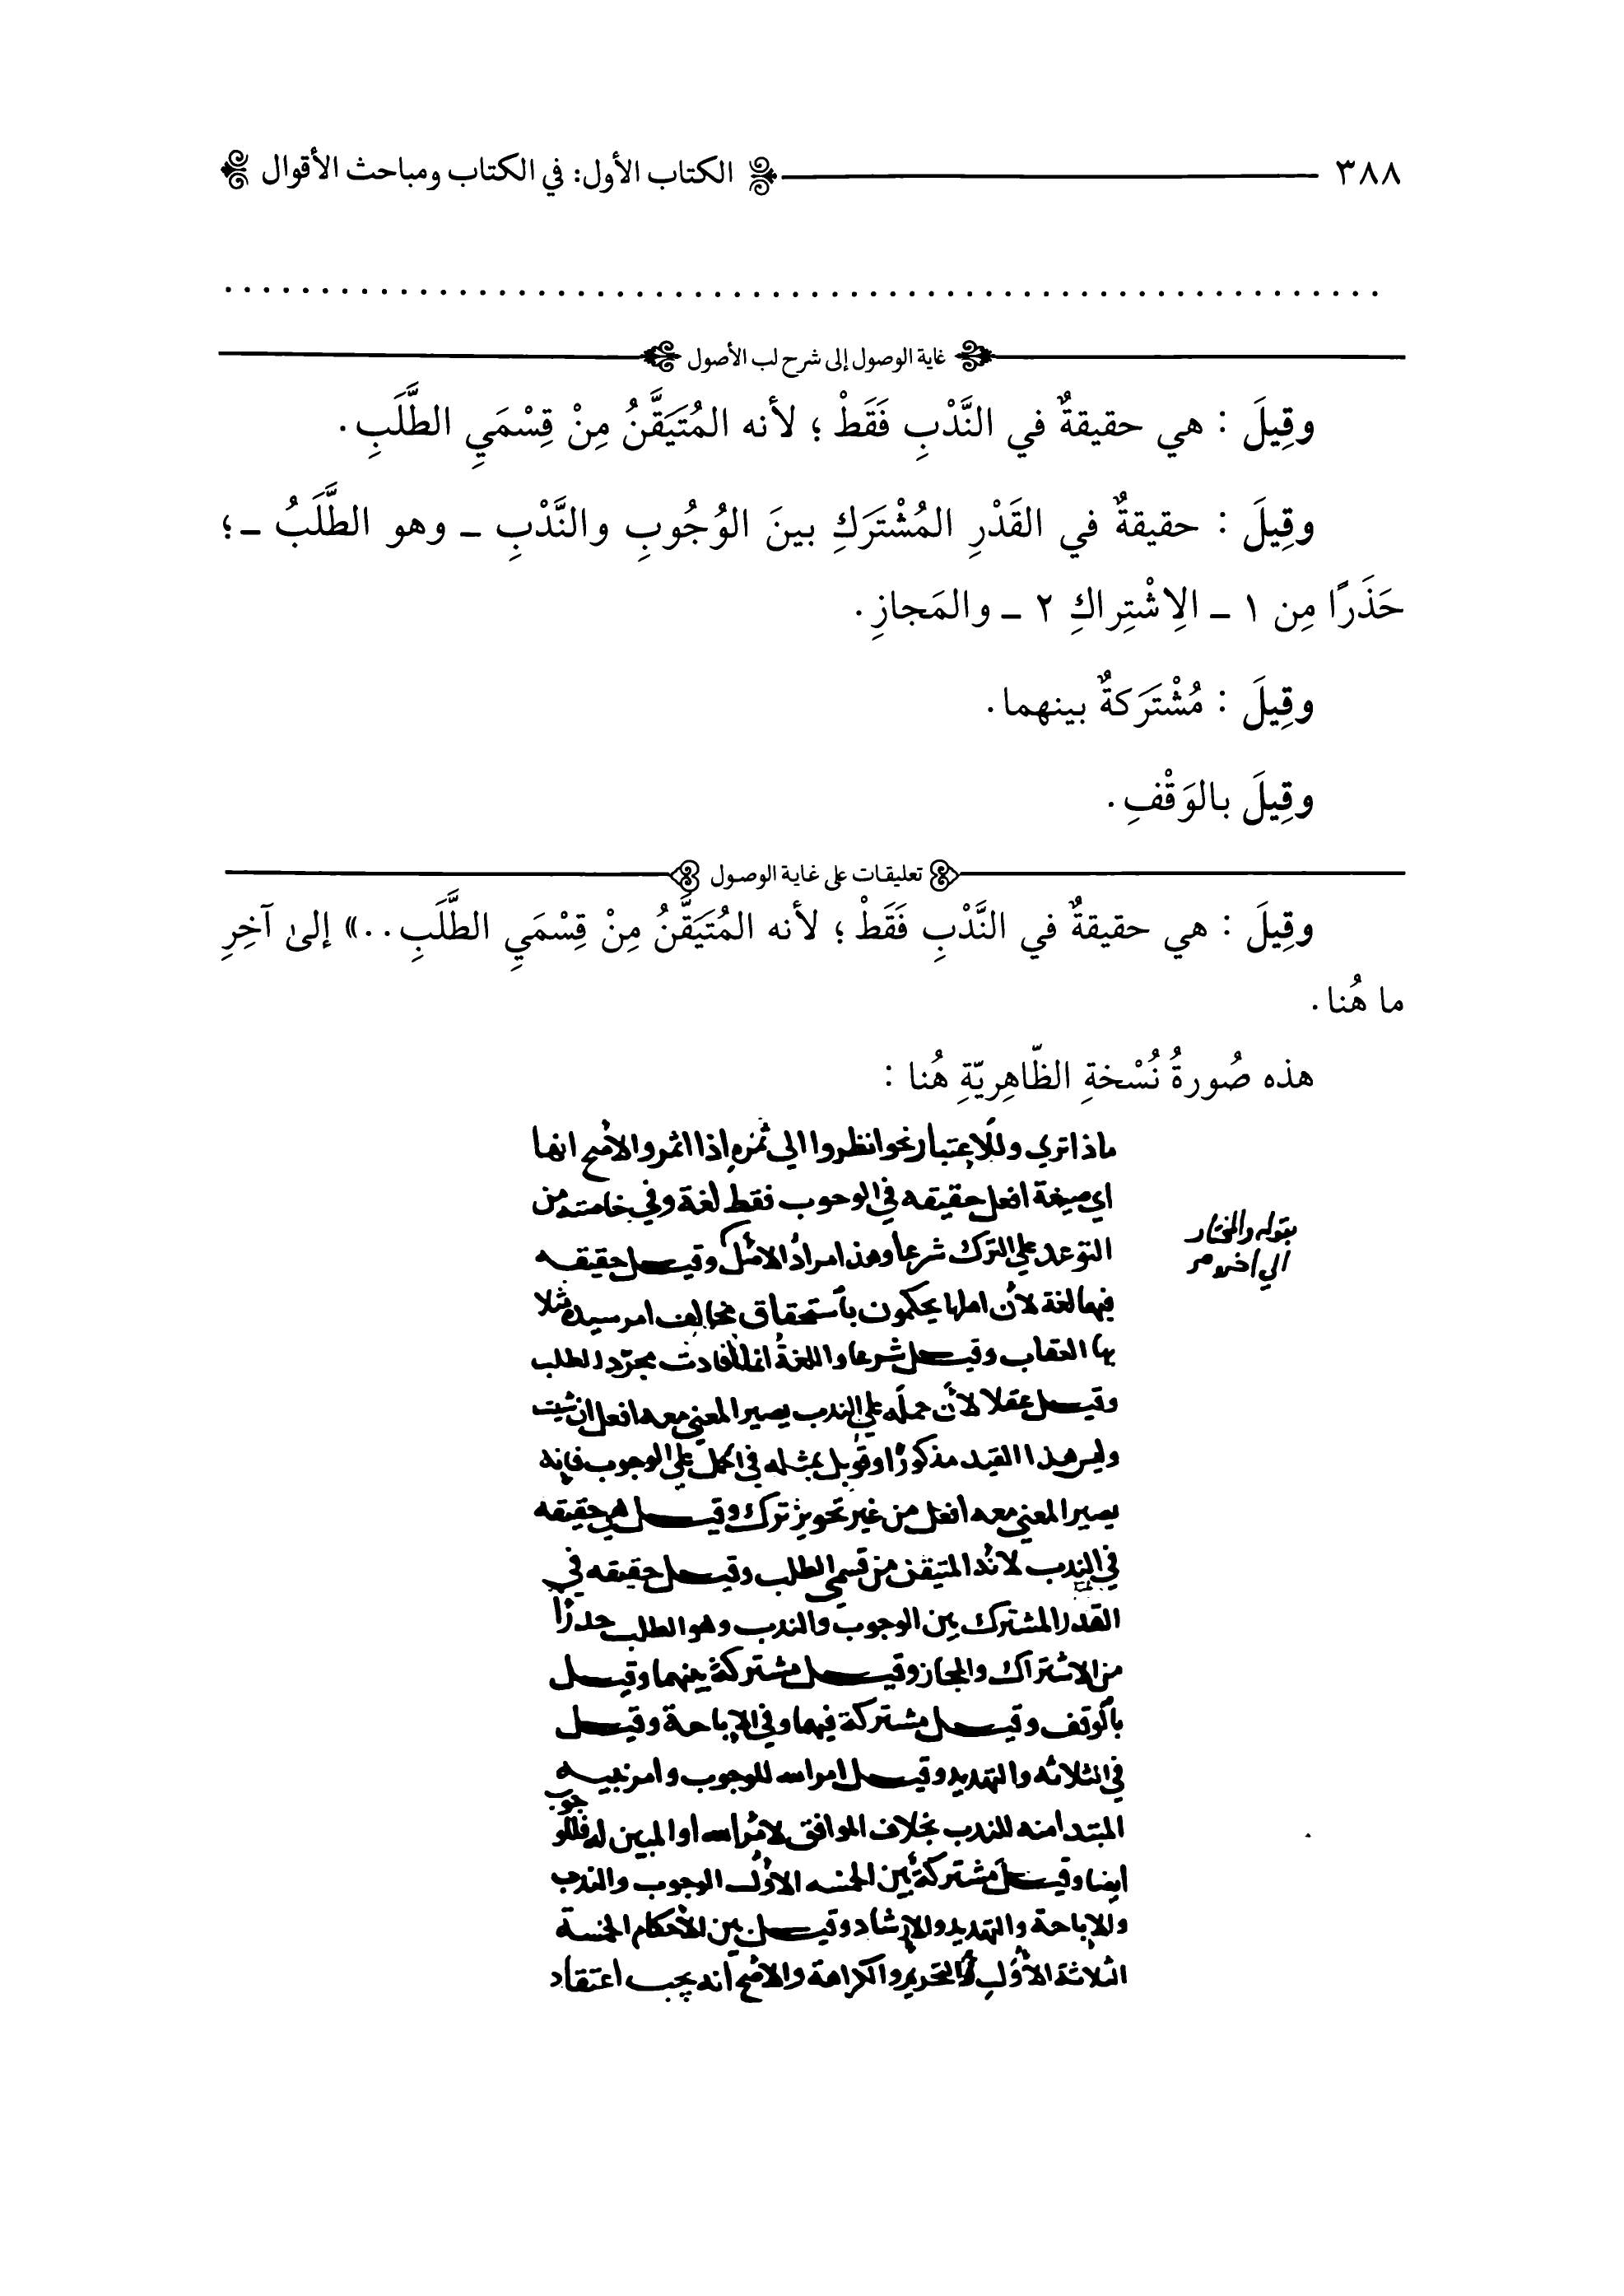 ٣٨٨ الكتاب الأول: في الكتاب ومباحث الأقوال
غاية الوصول إلى شرح لب الأصول
وقِيلَ : هي حقيقةٌ في النَّدْبِ فَقَطْ ؛ لأنه المُتَيَقَّنُ مِنْ قِسْمَيِ الطَّلَبِ .
وقِيلَ : حقيقةٌ في القَدْرِ المُشْتَرَكِ بينَ الوُجُوبِ والنَّدْبِ ـ وهو الطَّلَبُ ـ ؛
حَذَرًا مِن ١ ـ الِاشْتِراكِ ٢ ـ والمَجازِ .
وقِيلَ : مُشْتَرَكةٌ بينهما .
وقِيلَ بالوَقْفِ .
تعليقات على غاية الوصول
وقِيلَ : هي حقيقةٌ في النَّدْبِ فَقَطْ ؛ لأنه المُتَيَقَّنُ مِنْ قِسْمَيِ الطَّلَبِ . .» إلىٰ آخِرِ
ما هُنا .
هذه صُورةُ نُسْخةِ الظّاهِريّةِ هُنا :
ماذا تري وللاعتبار نحو انظروا الي ثمره إذا اثمر والاصح انها
اي صيغة افعل حقيقه في الوجوب فقط لغة وفي خامته من
التوعد علي الترك شرعا وهذا مراد الاصل وقيل حقيقه
بقوله والمختار
الي اخره
فيهما لغة لأن اهلها يحكمون باستحقاق مخالف امر سيده مثلا
بها العقاب وقيل شرعا واللغة انما افادت مجرد الطلب
وقيل عقلا لأن حمله علي الندب يصير المعني معه افعل ان شيت
وليس هذا القيد مذكورا وقوبل بمثله في الحمل علي الوجوب فإنه
يصير المعني معه افعل من غير تجويز ترك وقيل هي حقيقه
في الندب لانه المتيقن من قسمي الطلب وقيل حقيقه في
القدر المشترك بين الوجوب والندب وهو الطلب حذرا
من الاشتراك والمجاز وقيل مشتركة بينهما وقيل
بالوقف وقيل مشتركة فيهما وفي الإباحة وقيل
في الثلاثه والتهديد وقيل امر الله للوجوب وامر نبيه
المبتدا منه للندب بخلاف الموافق لامر الله او المبين له فللوجوب
ايضا وقيل مشتركة بين الخمسه الاول الوجوب والندب
والاباحة والتهديد والإرشاد وقيل بين الأحكام الخمسة
الثلاثة الأول والتحريم والكراهة والاصح انه يجب اعتقاد